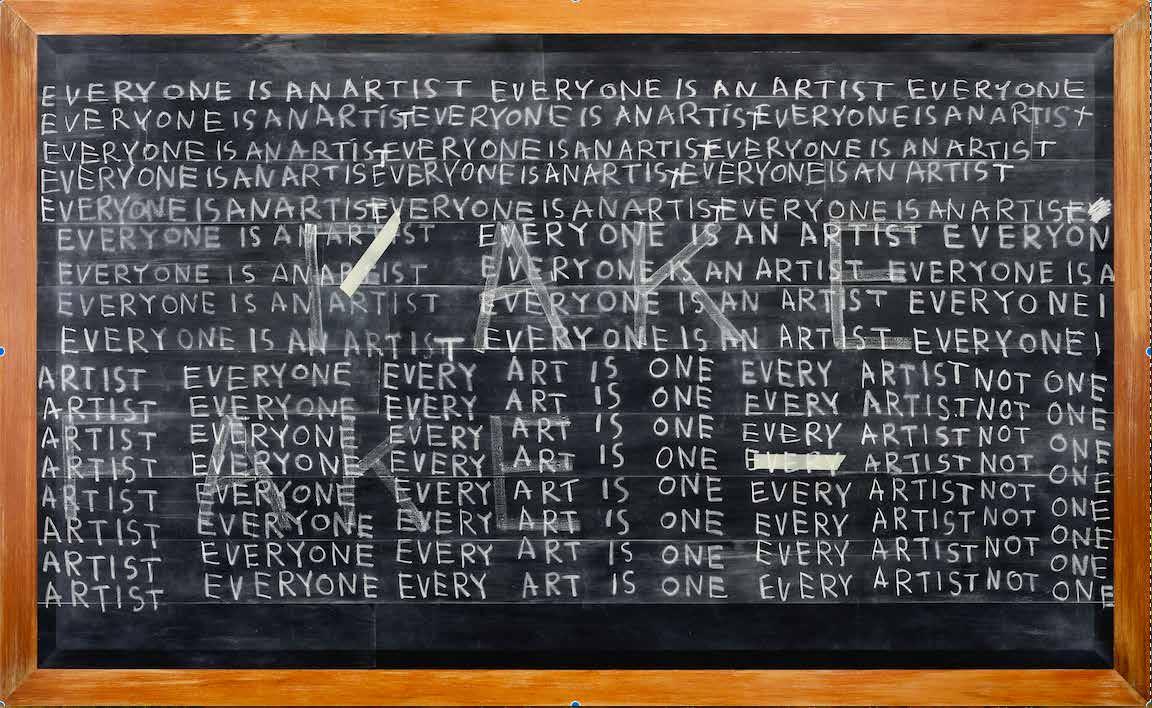 EVERYONE IS AN ARTIST EVERYONE IS AN ARTIST EVERYONE
EVERYONE IS AN ARTIST EVERYONE IS AN ARTIST EVERYONE IS AN ARTIST
EVERYONE IS AN ARTIST EVERYONE IS AN ARTIST EVERYONE IS AN ARTIST
EVERYONE IS AN ARTIST EVERYONE IS AN ARTIST EVERYONE IS AN ARTIST
EVERYONE IS AN ARTIST EVERYONE IS AN ARTIST EVERYONE IS AN ARTIST
EVERYONE IS AN ARTIST EVERYONE IS AN ARTIST EVERYON
TAKE
EVERYONE IS AN ARTIST EVERYONE IS AN ARTIST EVERYONE IS A
EVERYONE IS AN ARTIST EVERYONE IS AN ARTIST EVERYONE I
EVERYONE IS AN ARTIST EVERYONE IS AN ARTIST EVERYONE I
ARTIST EVERYONE EVERY ART IS ONE EVERY ARTIST NOT ONE
ARTIST EVERYONE EVERY ART IS ONE EVERY ARTIST NOT ONE
ARTIST EVERYONE EVERY ART IS ONE EVERY ARTIST NOT ONE
FAKE
ARTIST EVERYONE EVERY ART IS ONE EVERY ARTIST NOT ONE
ARTIST EVERYONE EVERY ART IS ONE EVERY ARTIST NOT ONE
ARTIST EVERYONE EVERY ART IS ONE EVERY ARTIST NOT ONE
ARTIST EVERYONE EVERY ART IS ONE EVERY ARTIST NOT ONE
ARTIST EVERYONE EVERY ART IS ONE EVERY ARTIST NOT ONE